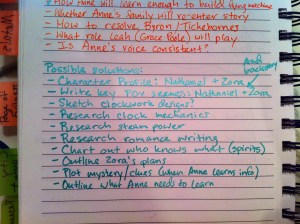 - How Anne will learn enough to build flying machine
- Whether Anne's family will re-enter story
- How to resolve Byron / Tichebornes
- What role Leah (Grace Poole) will play
- Is Anne's voice consistent?
Possible Solutions:
- Character Profile: Nathaniel + Zora
Add backstory
- Write key POV scenes: Nathaniel + Zora
- Sketch clockwork designs?
- Research clock mechanics
- Research steam power
- Research romance writing
- Chart out who knows what (spirits)
- Outline Zora's plans
- Plot mystery/clues (when Anne learns info)
- Outline what Anne needs to learn